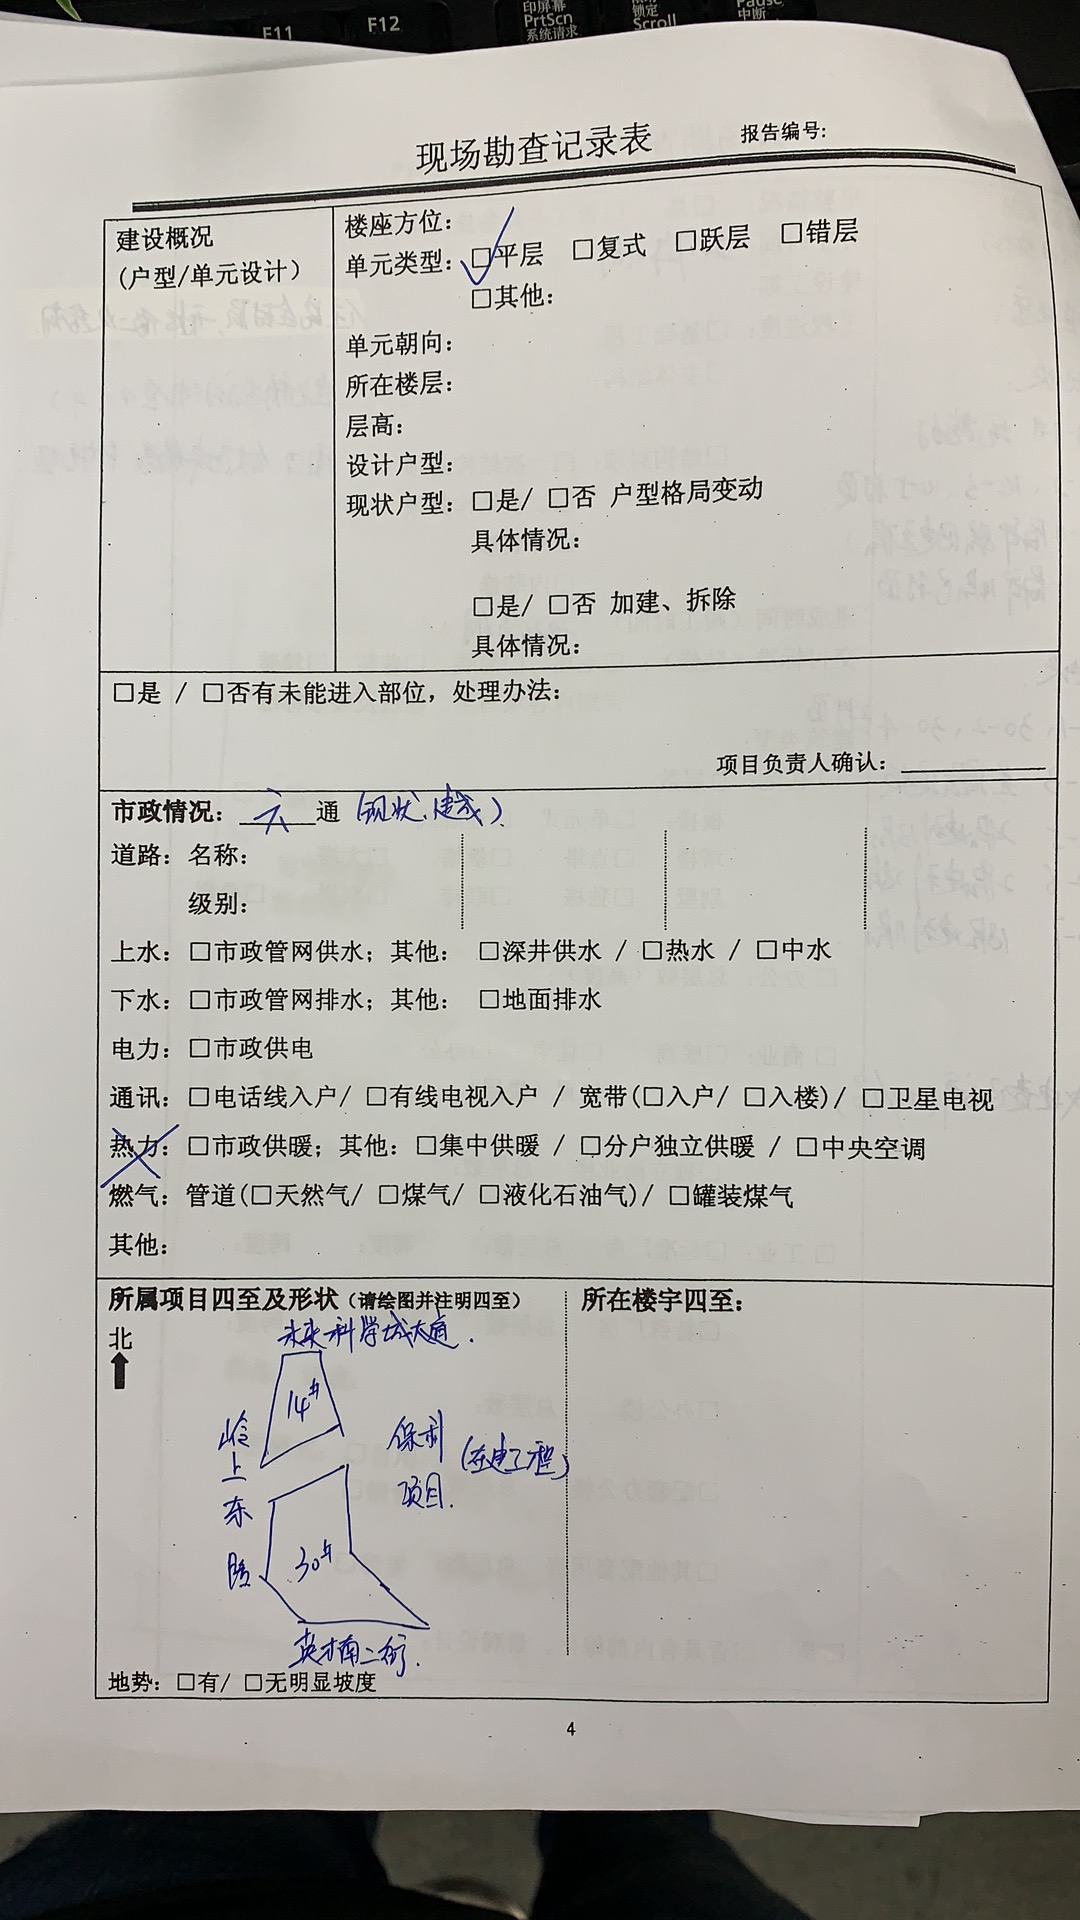 F11
F12
印屏幕
PrtScn
系统请求
锁定
Scroll
Pause
中断
现场勘查记录表
报告编号:
建设概况
(户型/单元设计)
楼座方位:
单元类型: ☐平层 ☐复式 ☐跃层 ☐错层
☐其他:
单元朝向:
所在楼层:
层高:
设计户型:
现状户型: ☐是/ ☐否 户型格局变动
具体情况:
☐是/ ☐否 加建、拆除
具体情况:
☐是 / ☐否有未能进入部位，处理办法:
项目负责人确认:
市政情况: 六 通 (现状、建成)
道路: 名称:
级别:
上水: ☐市政管网供水; 其他: ☐深井供水 / ☐热水 / ☐中水
下水: ☐市政管网排水; 其他: ☐地面排水
电力: ☐市政供电
通讯: ☐电话线入户/ ☐有线电视入户 / 宽带(☐入户/ ☐入楼)/ ☐卫星电视
热力: ☐市政供暖; 其他: ☐集中供暖 / ☐分户独立供暖 / ☐中央空调
燃气: 管道(☐天然气/ ☐煤气/ ☐液化石油气)/ ☐罐装煤气
其他:
所属项目四至及形状(请绘图并注明四至)
所在楼宇四至:
北
未来科学城大道.
14#
岭上东路
保利项目.
(在建工程)
30#
英才南二街.
地势: ☐有/ ☐无明显坡度
4